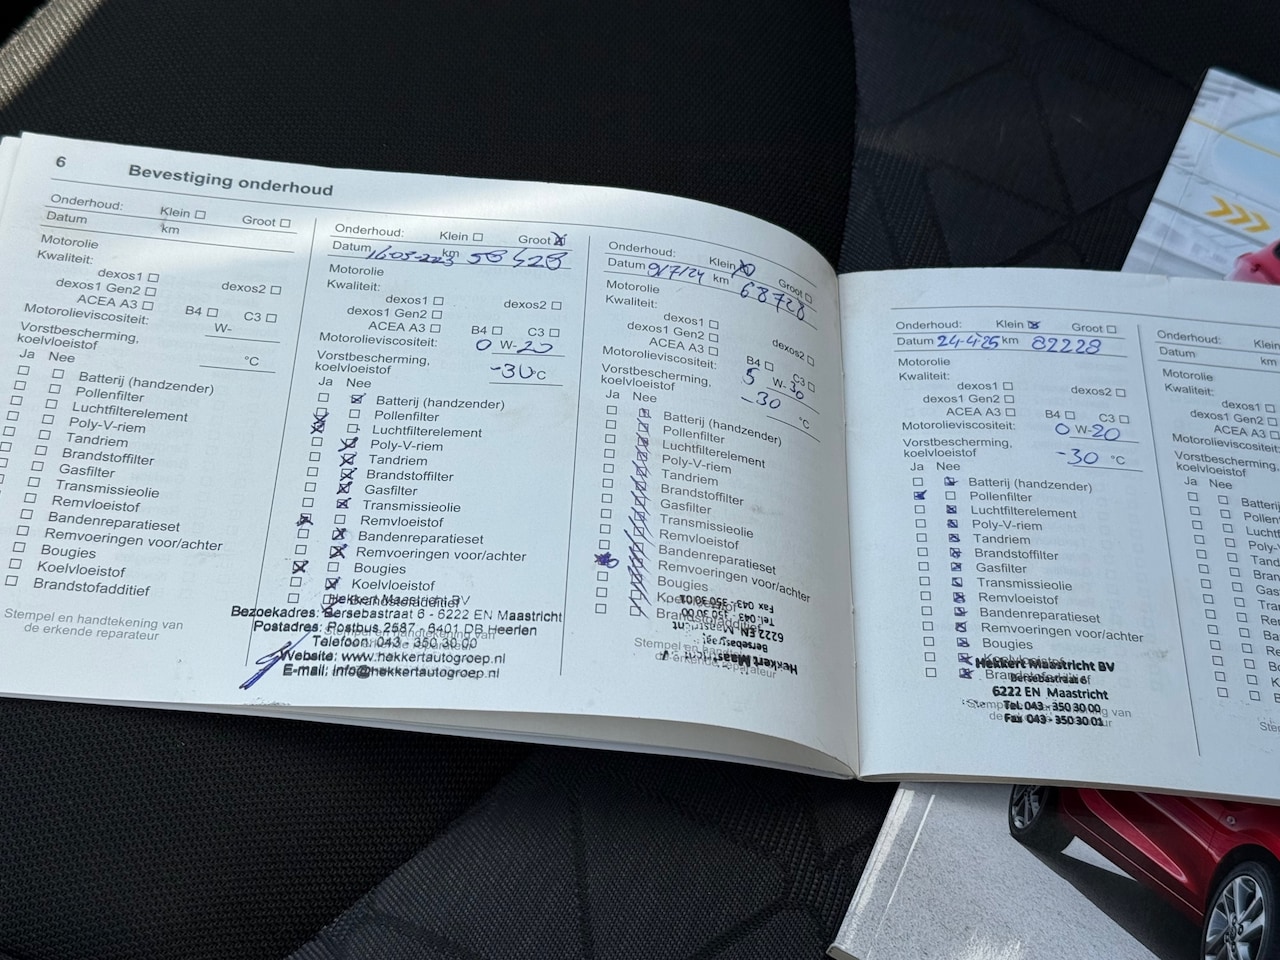 6 Bevestiging onderhoud
Onderhoud: Klein ☐ Groot ☐
Datum km
Motorolie
Kwaliteit:
dexos1 ☐ dexos2 ☐
dexos1 Gen2 ☐
ACEA A3 ☐ B4 ☐ C3 ☐
Motorolieviscositeit: W-
Vorstbescherming,
koelvloeistof °C
Ja Nee
☐ ☐ Batterij (handzender)
☐ ☐ Pollenfilter
☐ ☐ Luchtfilterelement
☐ ☐ Poly-V-riem
☐ ☐ Tandriem
☐ ☐ Brandstoffilter
☐ ☐ Gasfilter
☐ ☐ Transmissieolie
☐ ☐ Remvloeistof
☐ ☐ Bandenreparatieset
☐ ☐ Remvoeringen voor/achter
☐ ☐ Bougies
☐ ☐ Koelvloeistof
☐ ☐ Brandstofadditief
Stempel en handtekening van
de erkende reparateur
Onderhoud: Klein ☐ Groot ☒
Datum km
Motorolie
Kwaliteit:
dexos1 ☐ dexos2 ☐
dexos1 Gen2 ☐
ACEA A3 ☐ B4 ☐ C3 ☐
Motorolieviscositeit: 0 W-20
Vorstbescherming,
koelvloeistof -30 °C
Ja Nee
Batterij (handzender)
Pollenfilter
Luchtfilterelement
Poly-V-riem
Tandriem
Brandstoffilter
Gasfilter
Transmissieolie
Remvloeistof
Bandenreparatieset
Remvoeringen voor/achter
Bougies
Koelvloeistof
Brandstofadditief
Hekkert Maastricht BV
Bezoekadres: Bersebastraat 6 - 6222 EN Maastricht
Postadres: Postbus 2587 - 6401 DB Heerlen
Telefoon: 043 - 350 30 00
Website: www.hekkertautogroep.nl
E-mail: info@hekkertautogroep.nl
Onderhoud: Klein ☒ Groot ☐
Datum 9/7/24 km 68728
Motorolie
Kwaliteit:
dexos1 ☐ dexos2 ☐
dexos1 Gen2 ☐
ACEA A3 ☐ B4 ☐ C3 ☐
Motorolieviscositeit: 5 W-30
Vorstbescherming,
koelvloeistof -30 °C
Ja Nee
Batterij (handzender)
Pollenfilter
Luchtfilterelement
Poly-V-riem
Tandriem
Brandstoffilter
Gasfilter
Transmissieolie
Remvloeistof
Bandenreparatieset
Remvoeringen voor/achter
Bougies
Koelvloeistof
Brandstofadditief
Fax 043 - 350 30 01
Tel. 043 - 350 30 00
6222 EN Maastricht
Bersebastraat
Hekkert Maastricht
Stempel en handtekening van
de erkende reparateur
Onderhoud: Klein ☒ Groot ☐
Datum 24-4-25 km 82228
Motorolie
Kwaliteit:
dexos1 ☐ dexos2 ☐
dexos1 Gen2 ☐
ACEA A3 ☐ B4 ☐ C3 ☐
Motorolieviscositeit: 0 W-20
Vorstbescherming,
koelvloeistof -30 °C
Ja Nee
☐ ☒ Batterij (handzender)
☒ ☐ Pollenfilter
☐ ☒ Luchtfilterelement
☐ ☒ Poly-V-riem
☐ ☒ Tandriem
☐ ☒ Brandstoffilter
☐ ☒ Gasfilter
☐ ☒ Transmissieolie
☐ ☒ Remvloeistof
☐ ☒ Bandenreparatieset
☐ ☒ Remvoeringen voor/achter
☐ ☒ Bougies
☐ ☒ Koelvloeistof
☐ ☒ Brandstofadditief
Hekkert Maastricht BV
Bersebastraat 6
6222 EN Maastricht
Tel. 043 - 350 30 00
Fax 043 - 350 30 01
Onderhoud: Klein
Datum km
Motorolie
Kwaliteit:
dexos1 ☐
dexos1 Gen2 ☐
ACEA A3 ☐
Motorolieviscositeit:
Vorstbescherming,
koelvloeistof
Ja Nee